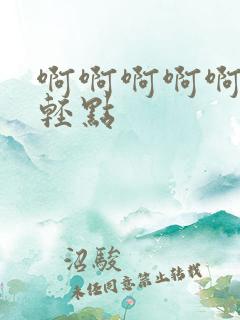 啊啊啊啊啊
輕點
沼駿
未任同意禁止转载